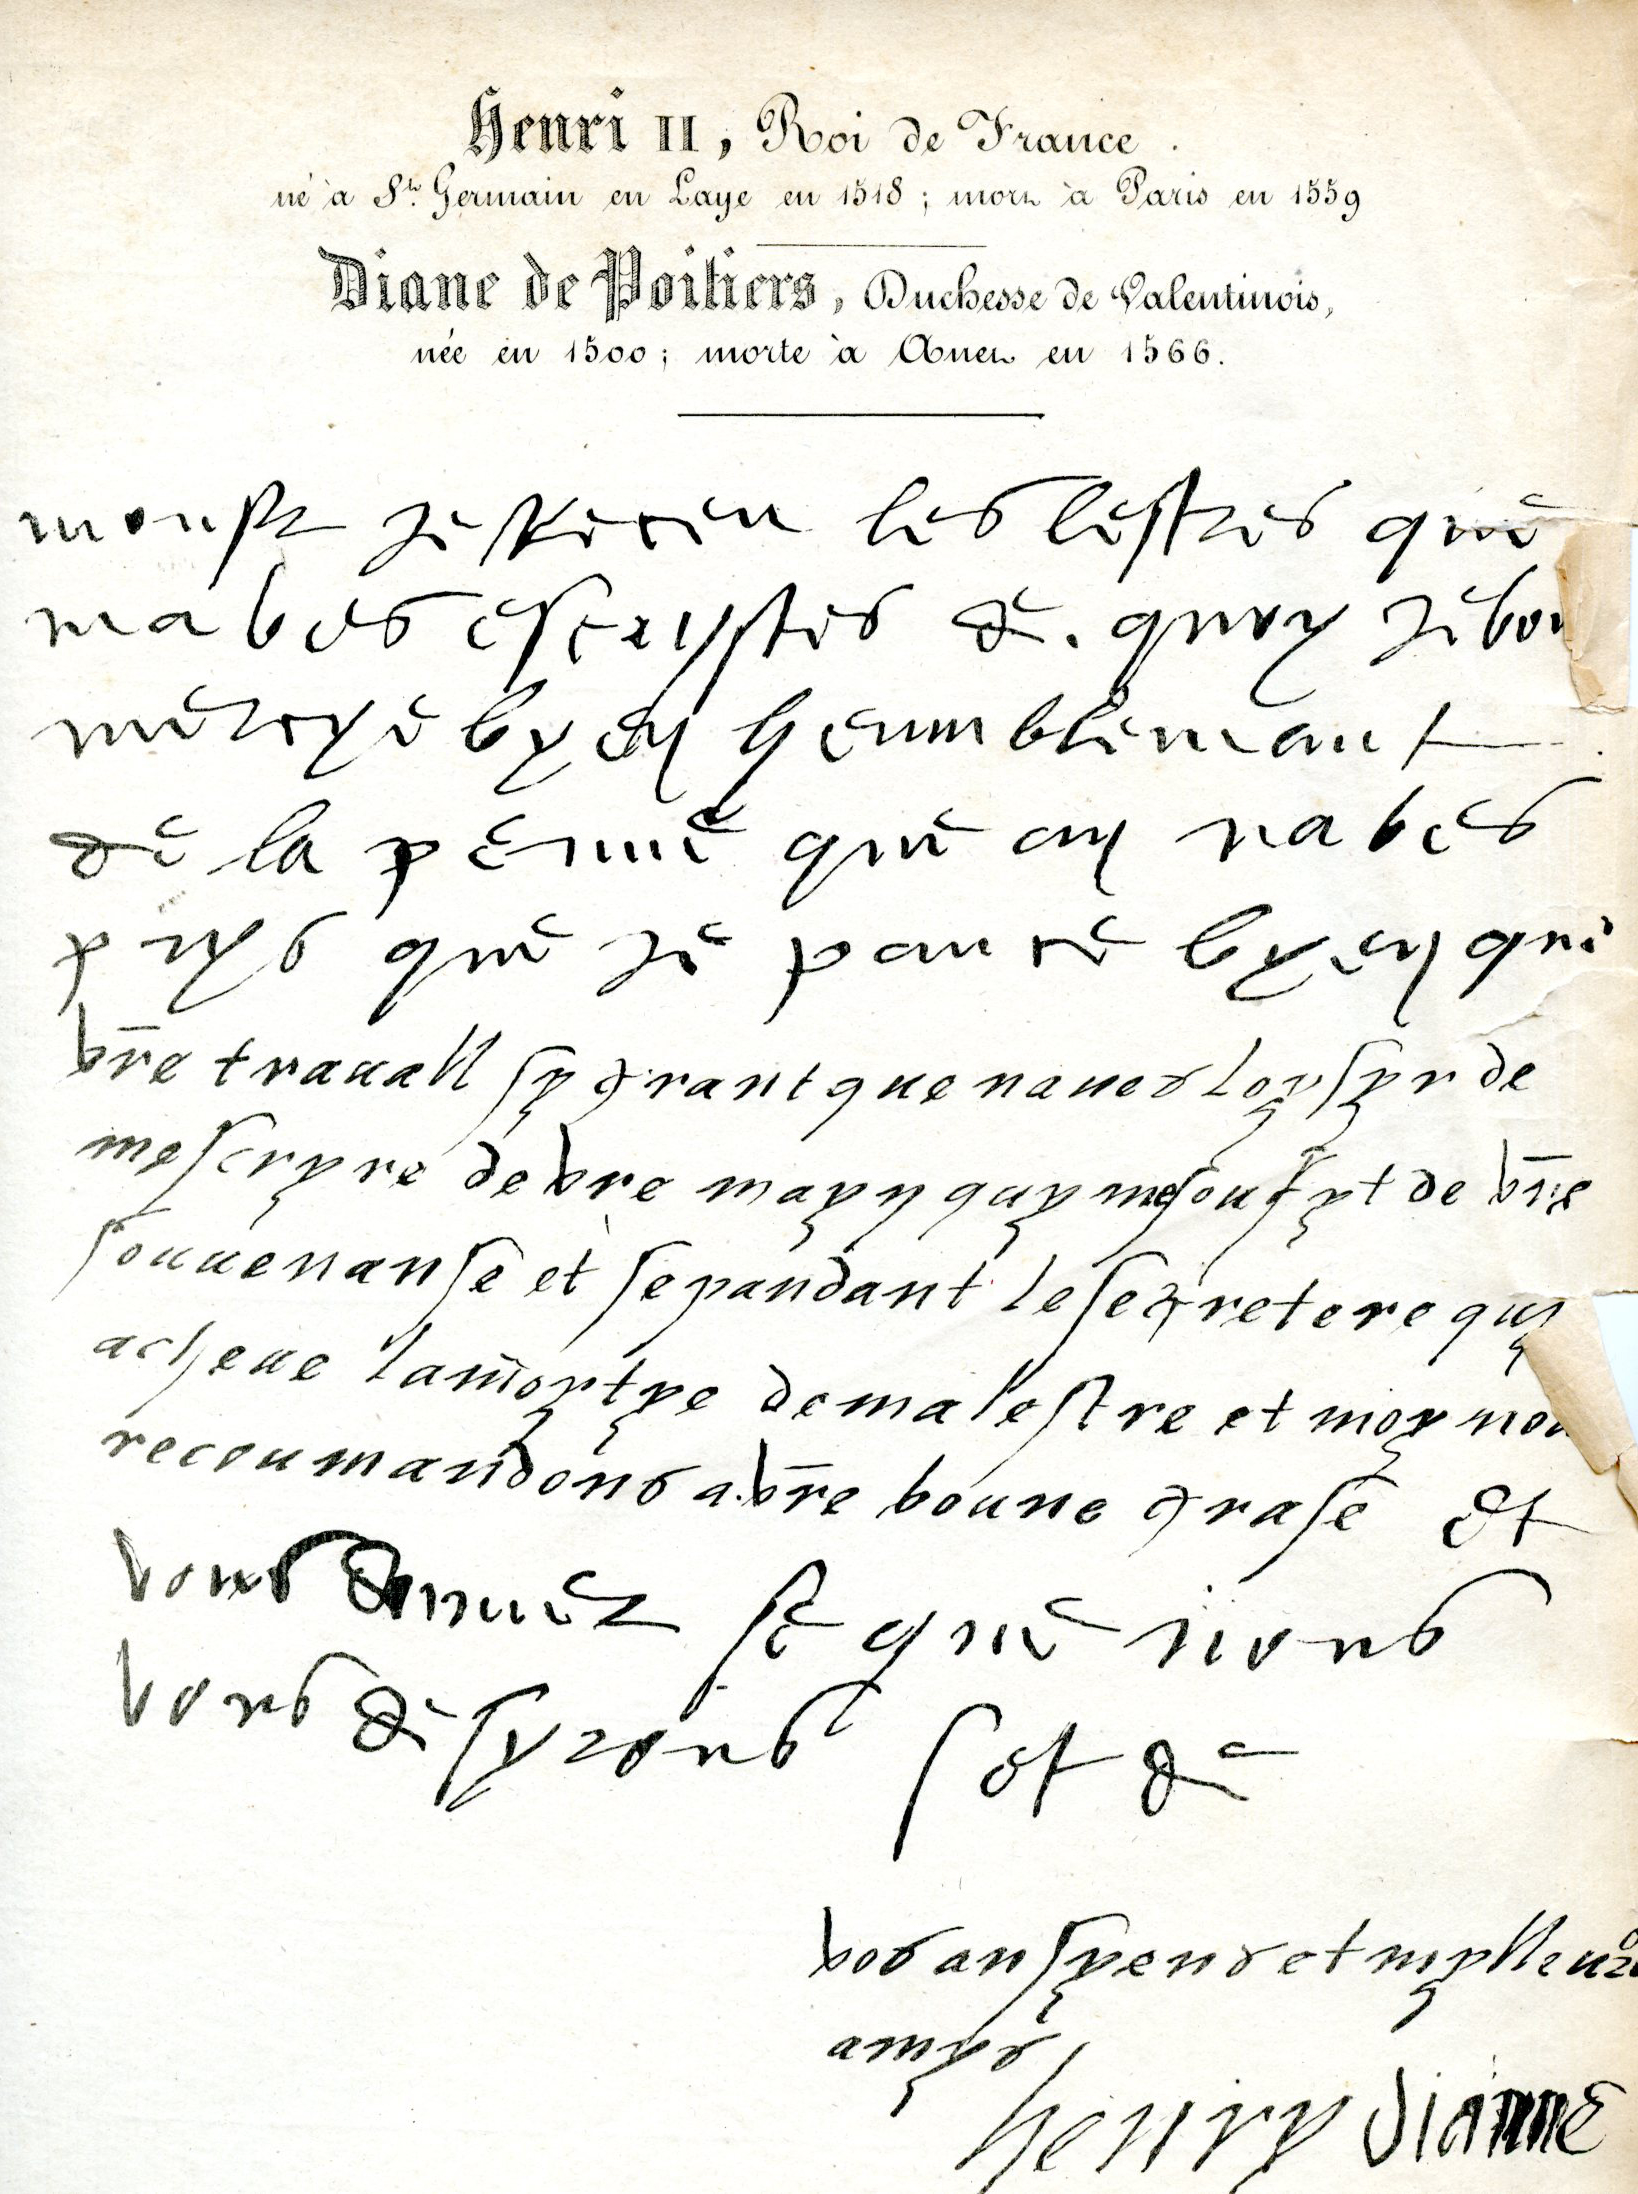 Henri II, Roi de France.
né à St. Germain en Laye en 1518; mort à Paris en 1559
Diane de Poitiers, Duchesse de Valentinois,
née en 1500; morte à Anet en 1566.
monsr je receu les lestres que
maves escryptes de quoy je vou
mercye byen heumblemant
de la penne que an naves
prys que je panse byen que
vre travall sy grant que naves loysyr de
mescryre de vre mayn quy me soufyt de vre
souvenanse et sepandant le segretere quy
acheve lamoytye de ma lestre et moy nou
recoumandons a vre bonne grase et
vous se que nous
vous desyrons set de
vos ansyens et mylleurs
amys
henry dianne